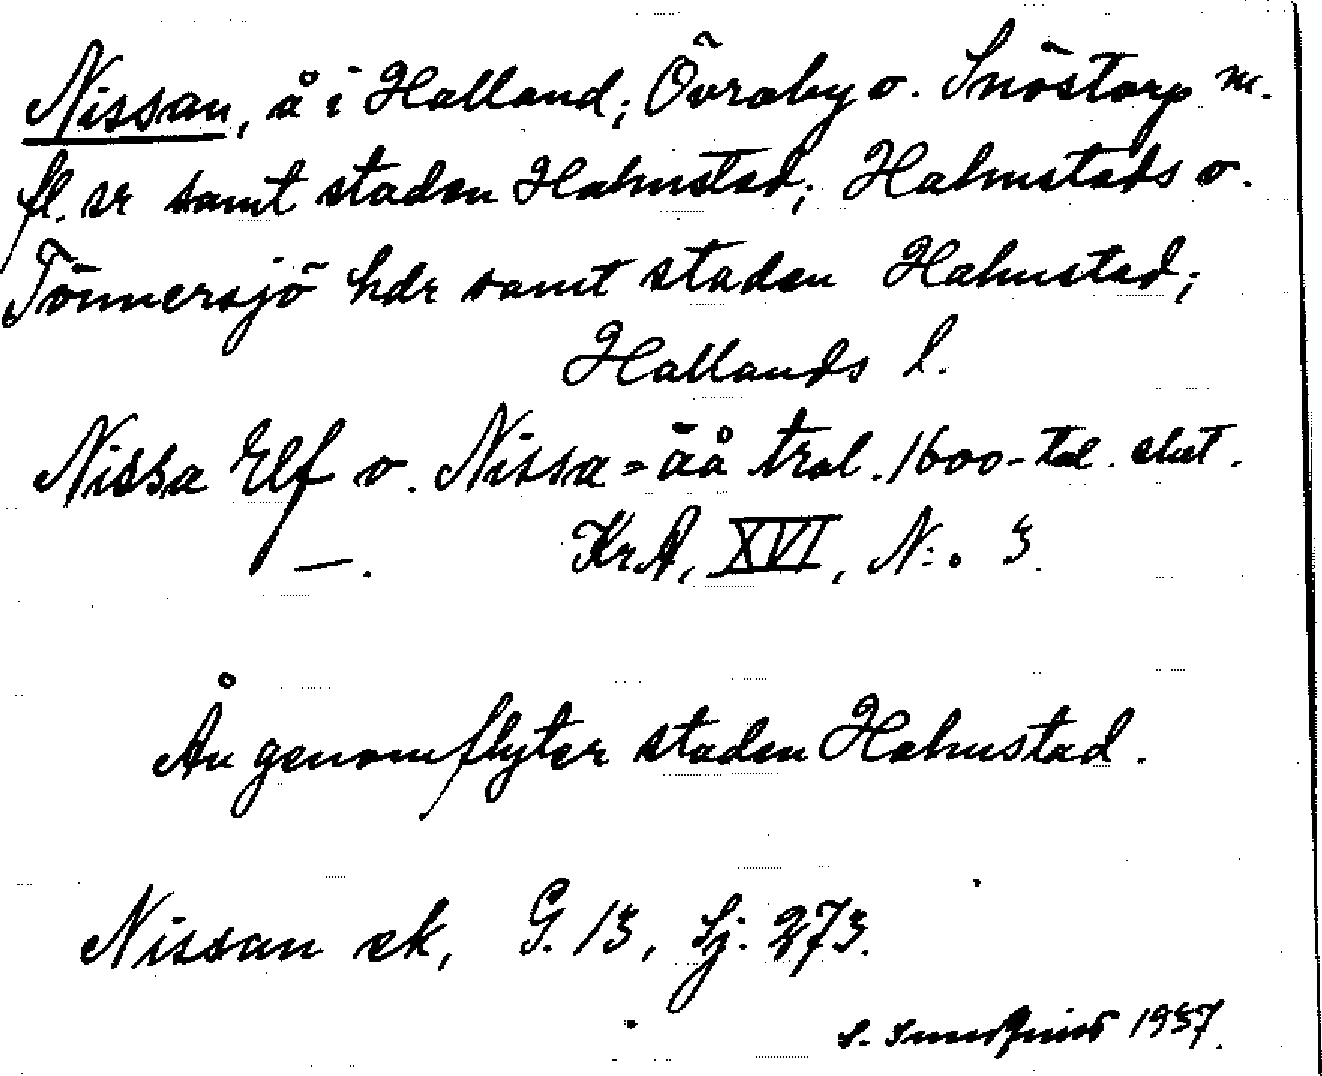 Nissan, å i Halland; Övraby o. Snöstorp m.
fl. sr samt staden Halmstad; Halmstads o.
Tönnersjö hdr samt staden Halmstad;
Hallands l.
Nissa Elf o. Nissa=åå trol. 1600-tal. slut.
—. KrA, XVI, N:o 3.
Ån genomflyter staden Halmstad.
Nissan ek, G. 13, Sj. 273.
S. Sundquist 1937.